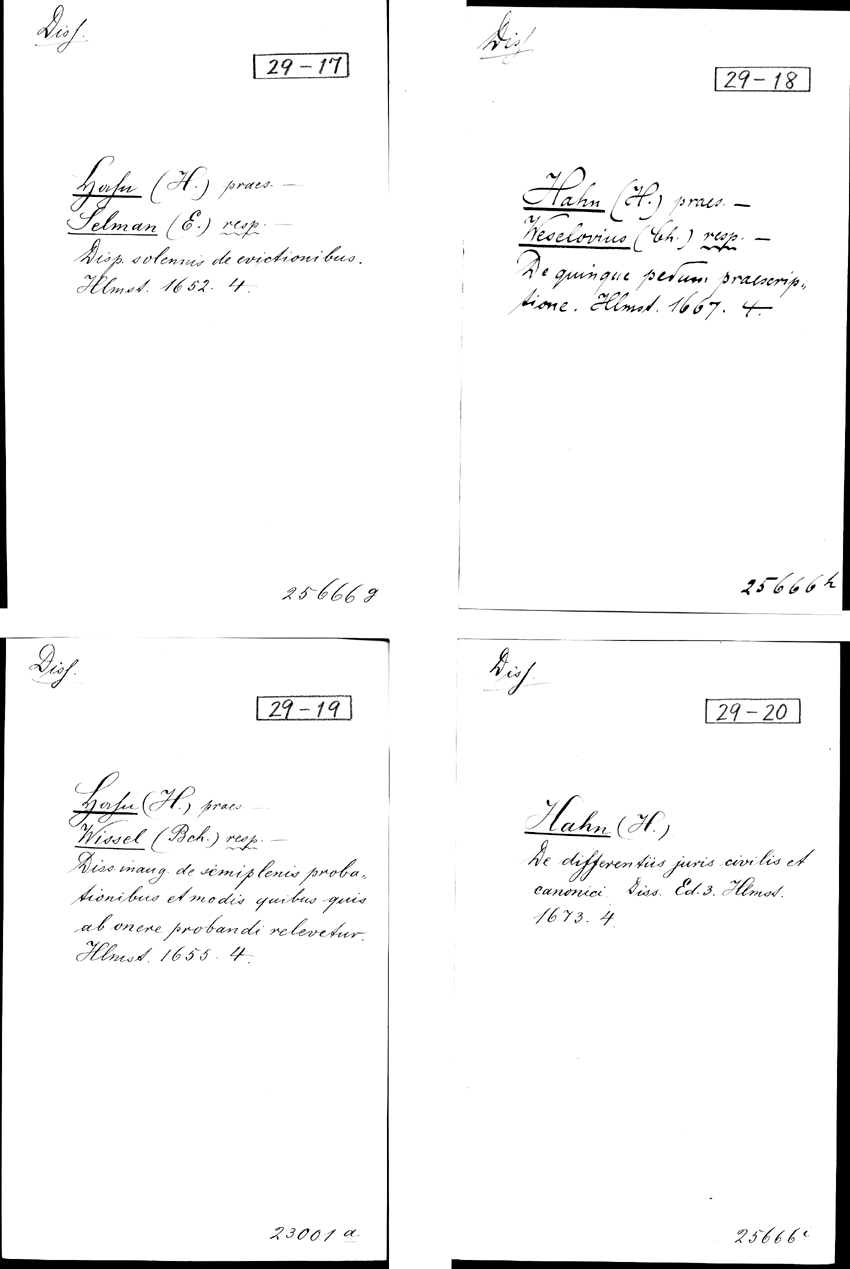 Diss.
29-17
Hahn (H.) praes. —
Selman (E.) resp. —
Disp. solennis de evictionibus.
Hlmst. 1652. 4.
25666 g
Diss.
29-18
Hahn (H.) praes. —
Weselovius (Ch.) resp. —
De quinque pedum praescrip-
tione. Hlmst. 1667. 4.
25666 h
Diss.
29-19
Hahn (H.) praes. —
Wissel (Bch.) resp. —
Diss. inaug. de semiplenis proba-
tionibus et modis quibus quis
ab onere probandi relevetur.
Hlmst. 1655. 4.
23001 a
Diss.
29-20
Hahn (H.)
De differentiis juris civilis et
canonici. Diss. Ed. 3. Hlmst.
1673. 4.
25666 i